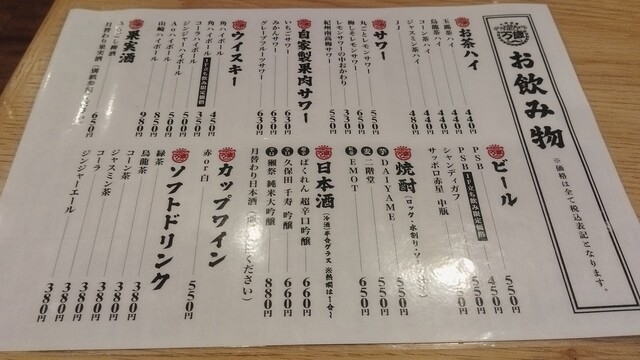 万歳
お飲み物
※価格は全て税込表記となります。
お茶ハイ
玉露茶ハイ 440円
烏龍茶ハイ 440円
コーン茶ハイ 440円
ジャスミン茶ハイ 480円
JJ
サワー
丸ごとレモンサワー 550円
梅しそレモンサワー 550円
レモンサワーの中おかわり 330円
紀州南高梅サワー 550円
自家製果肉サワー
いちごサワー 630円
みかんサワー 630円
グレープフルーツサワー 630円
ウイスキー
角ハイボール 450円
角ハイボール 1F立ち飲み限定価格 350円
コーラハイボール 500円
ジンジャーハイボール 500円
Aoハイボール 850円
山崎ハイボール 980円
果実酒
月替わり果実酒 650円
ビール
PSB 550円
PSB 1F立ち飲み限定価格 450円
シャンディガフ 550円
サッポロ赤星 中瓶
焼酎
DAIYAME 550円
二階堂 550円
EMOT 650円
日本酒
ばくれん 超辛口吟醸 660円
久保田 千寿 吟醸 660円
獺祭 純米大吟醸 880円
月替わり日本酒
カップワイン
赤or白 550円
ソフトドリンク
緑茶 380円
烏龍茶 380円
コーン茶 380円
ジャスミン茶 380円
コーラ 380円
ジンジャーエール 380円